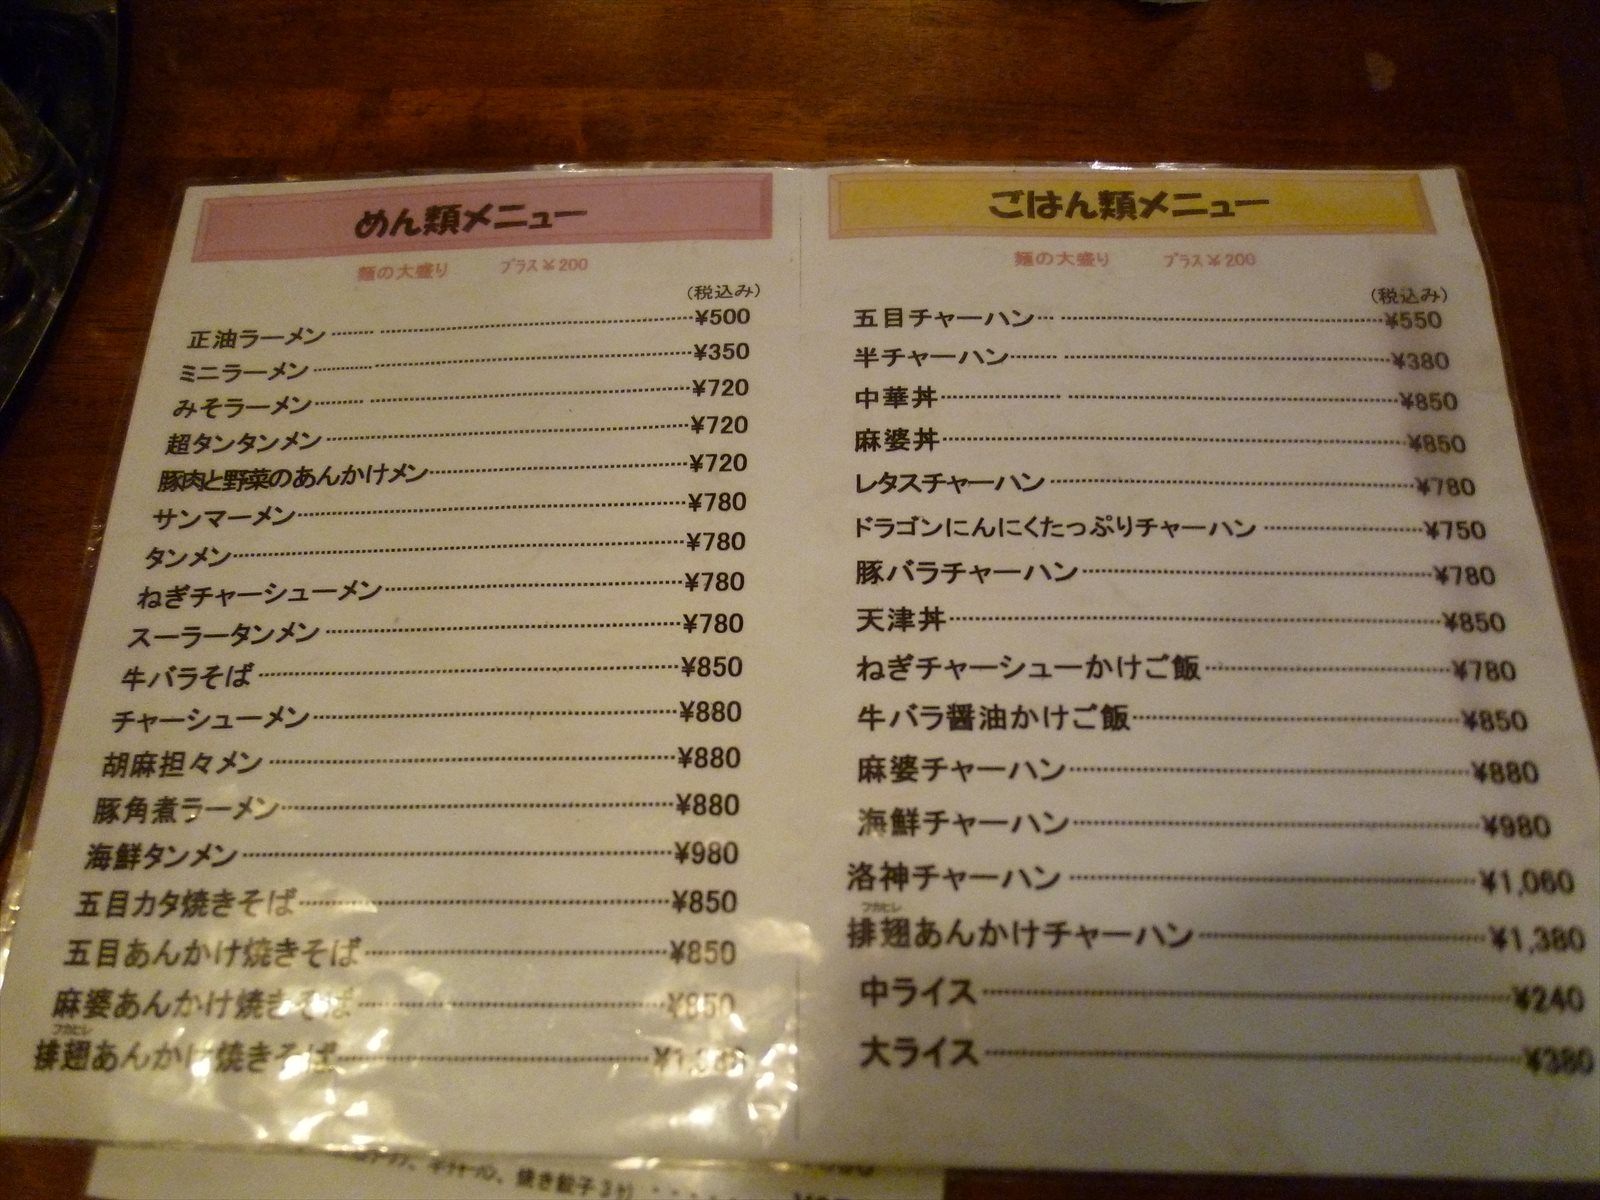 めん類メニュー
麺の大盛り プラス¥200
(税込み)
正油ラーメン ¥500
ミニラーメン ¥350
みそラーメン ¥720
超タンタンメン ¥720
豚肉と野菜のあんかけメン ¥720
サンマーメン ¥780
タンメン ¥780
ねぎチャーシューメン ¥780
スーラータンメン ¥780
牛バラそば ¥850
チャーシューメン ¥880
胡麻担々メン ¥880
豚角煮ラーメン ¥880
海鮮タンメン ¥980
五目カタ焼きそば ¥850
五目あんかけ焼きそば ¥850
麻婆あんかけ焼きそば ¥850
フカヒレ
排翅あんかけ焼きそば
ごはん類メニュー
麺の大盛り プラス¥200
(税込み)
五目チャーハン ¥550
半チャーハン ¥380
中華丼 ¥850
麻婆丼 ¥850
レタスチャーハン ¥780
ドラゴンにんにくたっぷりチャーハン ¥750
豚バラチャーハン ¥780
天津丼 ¥850
ねぎチャーシューかけご飯 ¥780
牛バラ醤油かけご飯 ¥850
麻婆チャーハン ¥880
海鮮チャーハン ¥980
洛神チャーハン ¥1,060
フカヒレ
排翅あんかけチャーハン ¥1,380
中ライス ¥240
大ライス ¥380
焼き餃子3ケ)